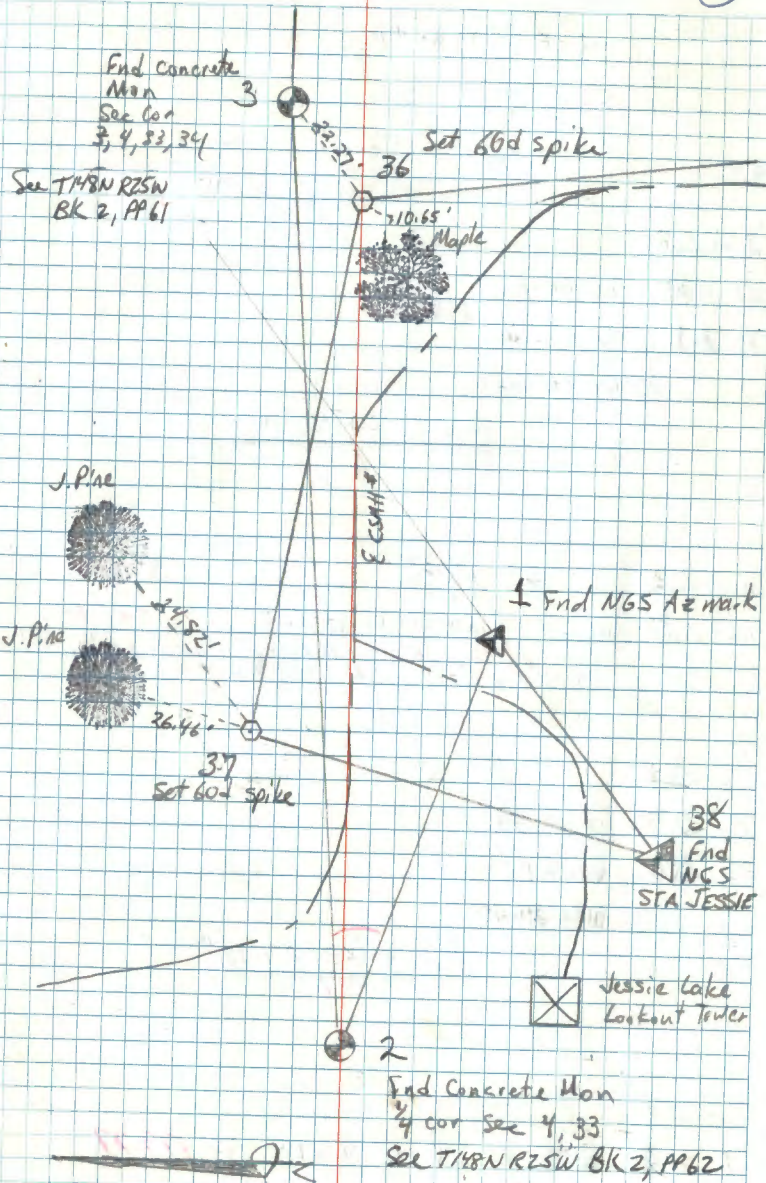 Fnd Concrete
Mon
Sec Cor
3, 4, 33, 34
See T148N R25W
BK 2, PP 61
3
22.27'
36
Set 60d spike
10.65'
Maple
J. Pine
24.82'
J. Pine
26.46'
37
Set 60d spike
1 Fnd NGS Az mark
38
Fnd
NGS
STA JESSIE
Jessie Lake
Lookout Tower
2
Fnd Concrete Mon
1/4 cor Sec 4, 33
See T148N R25W BK 2, PP 62